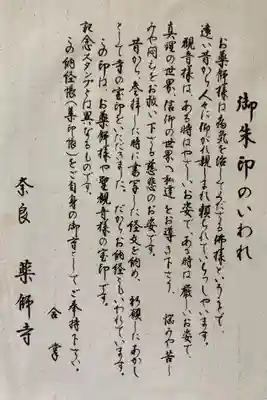 御朱印のいわれ
お薬師様は病気を治して下さる佛様ということで、
遠い昔から人々に仰がれ親しまれ頼られていらっしゃいます。
観音様は、ある時はやさしいお姿で、ある時は厳しいお姿で、
真理の世界、信仰の世界へ私達をお導き下さり 悩みや苦し
みや悶えをお救い下さる慈悲のお姿です。
昔から、参拝した時に書写した経文を納め、祈願したあかし
として寺の宝印をいただきました。だからお納経ともいわれています。
この印は、お薬師様や聖観音様の宝印です。
記念スタンプとは異なるものです。
この納経帳(集印帳)をご自身の御守としてご奉持下さい。
合掌
奈良 薬師寺